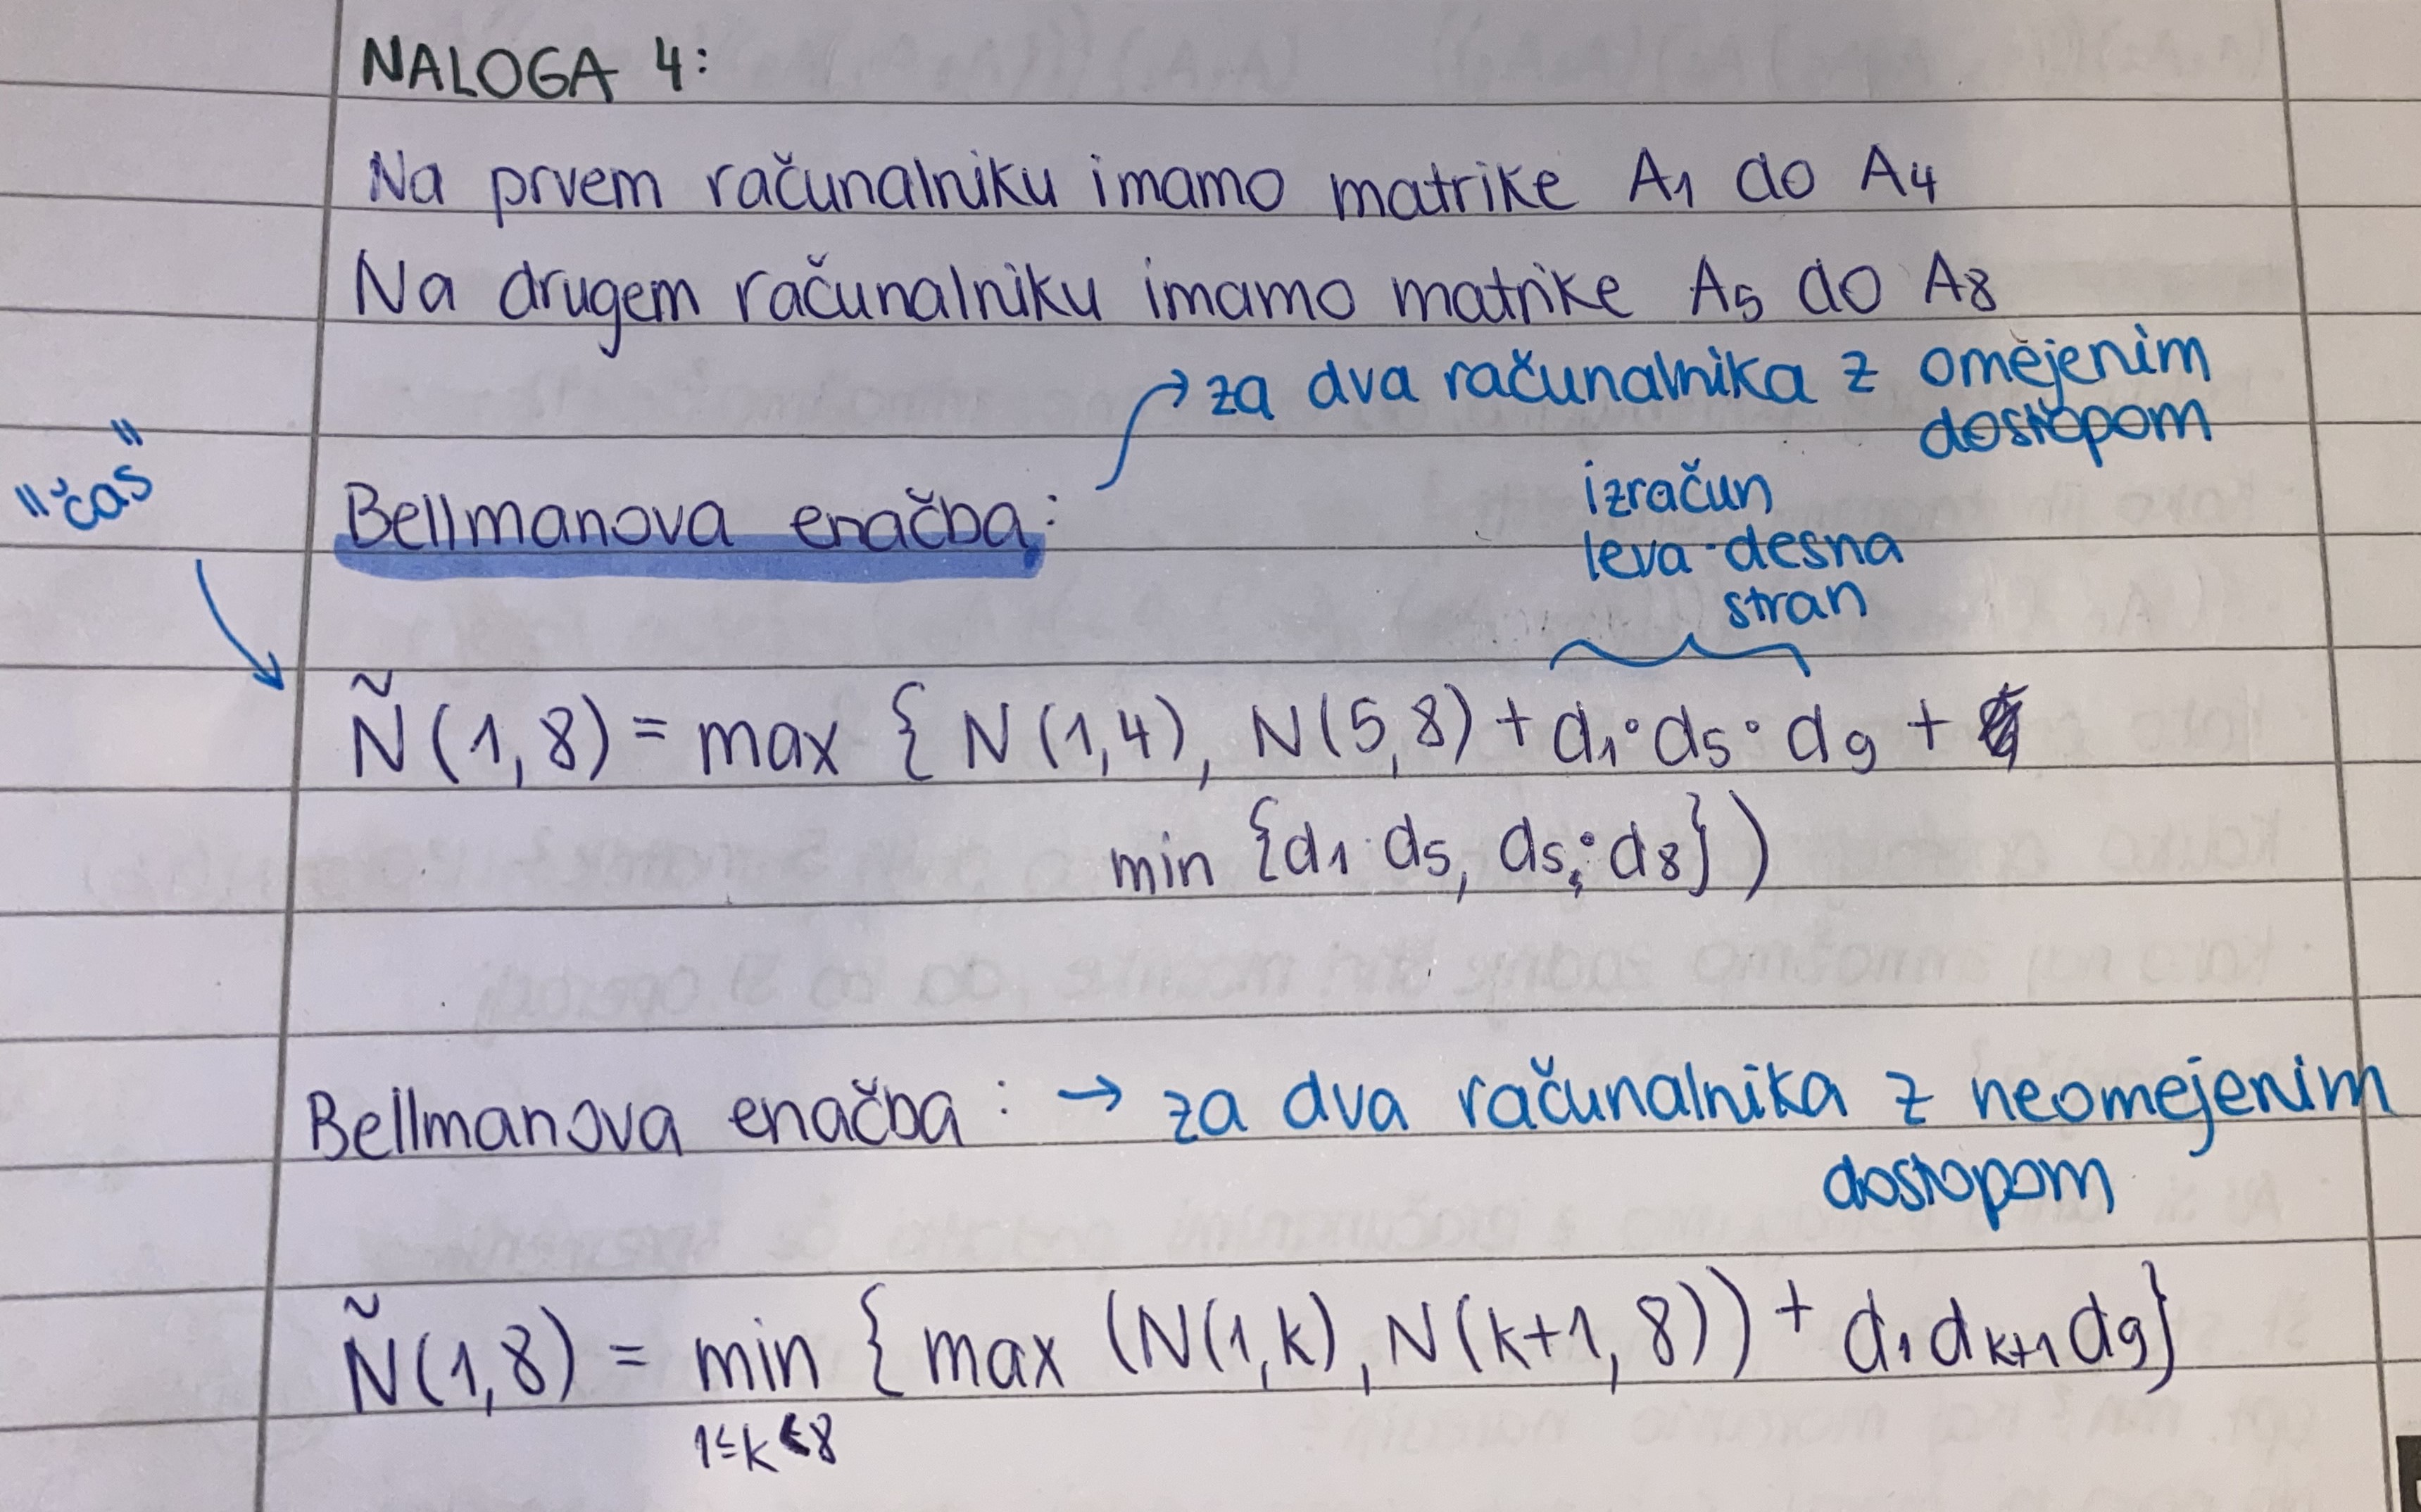 NALOGA 4:
Na prvem računalniku imamo matrike A₁ do A₄
Na drugem računalniku imamo matrike A₅ do A₈
→ za dva računalnika z omejenim
dostopom
"čas"
Bellmanova enačba:
izračun
leva · desna
stran
Ñ(1,8) = max { N(1,4), N(5,8) + d₁·d₅·d₉ +
min {d₁ d₅, d₅·d₈})
Bellmanova enačba : → za dva računalnika z neomejenim
dostopom
Ñ(1,8) = min { max (N(1,k), N(k+1,8)) + d₁ dₖ₊₁ d₉}
1≤k<8